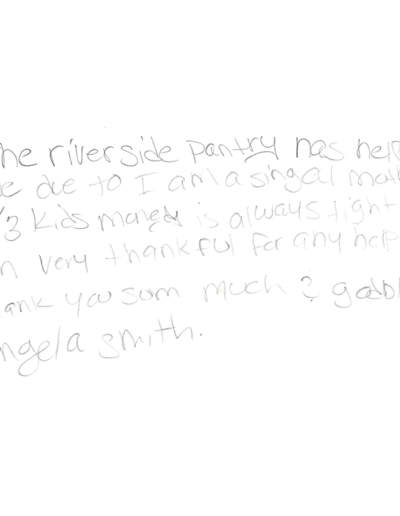 he riverside pantry has help
e due to I am a singal moth
/3 kids money is always tight
n very thankful for any help
ank you som much & godbl
ngela smith.